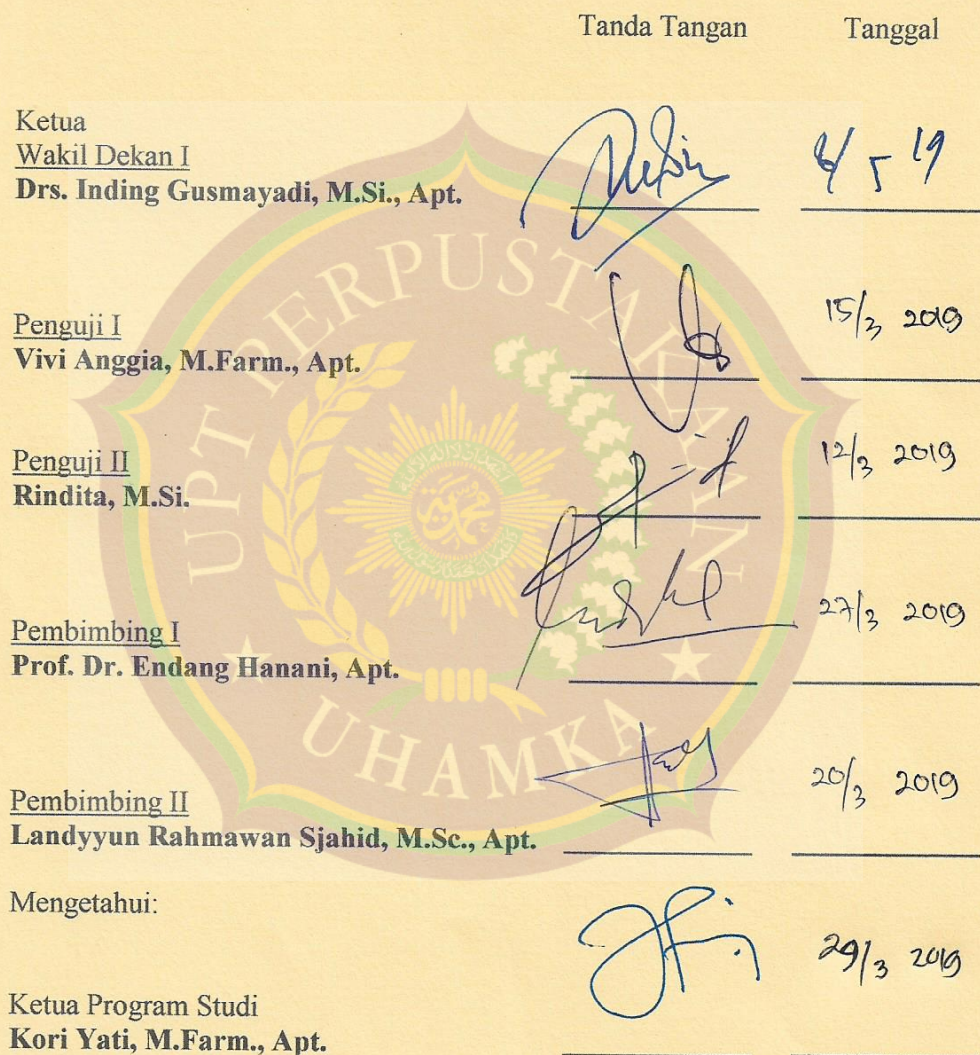 Tanda Tangan Tanggal
Ketua
Wakil Dekan I
Drs. Inding Gusmayadi, M.Si., Apt.
Penguji I
Vivi Anggia, M.Farm., Apt.
15/3 2019
Penguji II
Rindita, M.Si.
12/3 2019
Pembimbing I
Prof. Dr. Endang Hanani, Apt.
27/3 2019
Pembimbing II
Landyyun Rahmawan Sjahid, M.Sc., Apt.
20/3 2019
Mengetahui:
29/3 2019
Ketua Program Studi
Kori Yati, M.Farm., Apt.
UPT PERPUSTAKAAN
UHAMKA